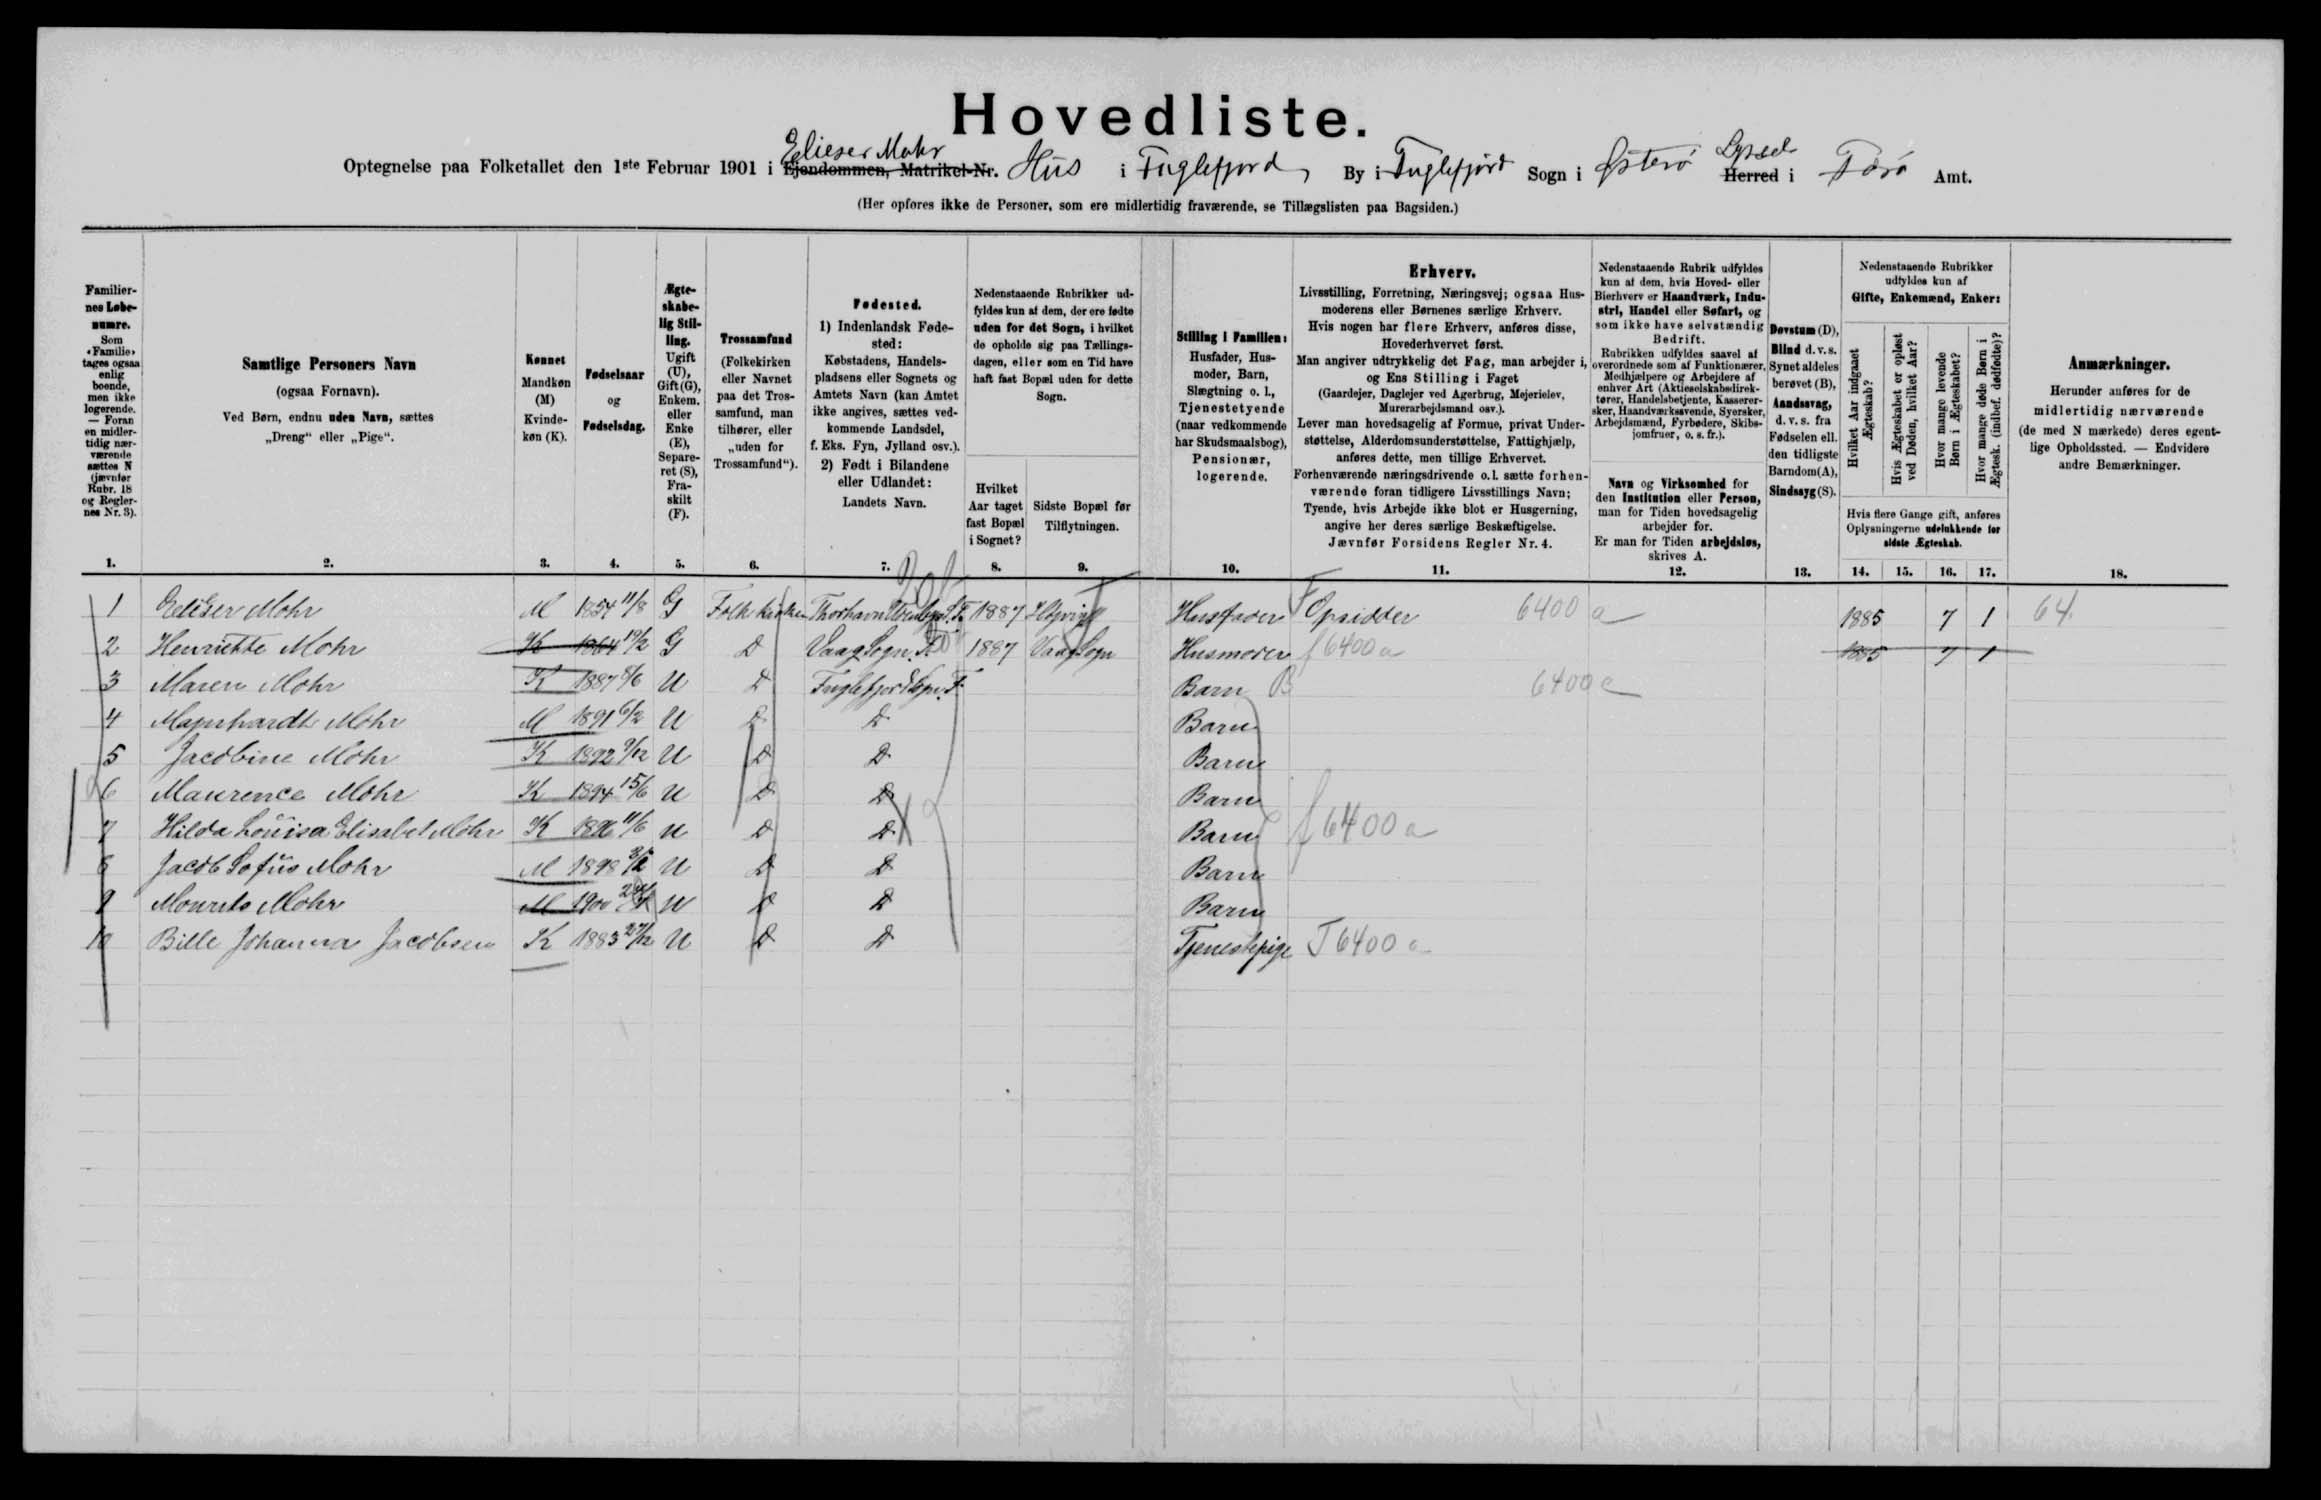 Hovedliste.
Optegnelse paa Folketallet den 1ste Februar 1901 i Ejendommen, Matrikel-Nr. Elieser Mohr Hus i Fuglefjord By i Fuglefjord Sogn i Østerø Herred Syssel i Færø Amt.
(Her opføres ikke de Personer, som ere midlertidig fraværende, se Tillægslisten paa Bagsiden.)
Familiernes Løbenumre. Som «Familie» tages ogsaa enlig boende, men ikke logerende. — Foran en midlertidig nærværende sættes N (jævnfør Rubr. 18 og Reglernes Nr. 3).
Samtlige Personers Navn
(ogsaa Fornavn).
Ved Børn, endnu uden Navn, sættes
„Dreng“ eller „Pige“.
Kønnet
Mandkøn (M)
Kvindekøn (K).
Fødselsaar
og
Fødselsdag.
Ægteskabelig Stilling. Ugift (U), Gift (G), Enkem. eller Enke (E), Separeret (S), Fraskilt (F).
Trossamfund
(Folkekirken eller Navnet paa det Trossamfund, man tilhører, eller „uden for Trossamfund“).
Fødested.
1) Indenlandsk Fødested:
Købstadens, Handelspladsens eller Sognets og Amtets Navn (kan Amtet ikke angives, sættes vedkommende Landsdel, f. Eks. Fyn, Jylland osv.).
2) Født i Bilandene eller Udlandet:
Landets Navn.
Nedenstaaende Rubrikker udfyldes kun af dem, der ere fødte uden for det Sogn, i hvilket de opholde sig paa Tællingsdagen, eller som en Tid have haft fast Bopæl uden for dette Sogn.
Hvilket Aar taget fast Bopæl i Sognet?
Sidste Bopæl før Tilflytningen.
Stilling i Familien:
Husfader, Husmoder, Barn, Slægtning o. l., Tjenestetyende (naar vedkommende har Skudsmaalsbog), Pensionær, logerende.
Erhverv.
Livsstilling, Forretning, Næringsvej; ogsaa Husmoderens eller Børnenes særlige Erhverv.
Hvis nogen har flere Erhverv, anføres disse, Hovederhvervet først.
Man angiver udtrykkelig det Fag, man arbejder i, og Ens Stilling i Faget
(Gaardejer, Daglejer ved Agerbrug, Mejerielev, Murerarbejdsmand osv.).
Lever man hovedsagelig af Formue, privat Understøttelse, Alderdomsunderstøttelse, Fattighjælp, anføres dette, men tillige Erhvervet.
Forhenværende næringsdrivende o. l. sætte forhenværende foran tidligere Livsstillings Navn;
Tyende, hvis Arbejde ikke blot er Husgerning, angive her deres særlige Beskæftigelse.
Jævnfør Forsidens Regler Nr. 4.
Nedenstaaende Rubrik udfyldes kun af dem, hvis Hoved- eller Bierhverv er Haandværk, Industri, Handel eller Søfart, og som ikke have selvstændig Bedrift.
Rubrikken udfyldes saavel af overordnede som af Funktionærer, Medhjælpere og Arbejdere af enhver Art (Aktieselskabsdirektører, Handelsbetjente, Kasserersker, Haandværkssvende, Syersker, Arbejdsmænd, Fyrbødere, Skibsjomfruer, o. s. fr.).
Navn og Virksomhed for den Institution eller Person, man for Tiden hovedsagelig arbejder for.
Er man for Tiden arbejdsløs, skrives A.
Døvstum (D), Blind d. v. s. Synet aldeles berøvet (B), Aandssvag, d. v. s. fra Fødselen ell. den tidligste Barndom (A), Sindssyg (S).
Nedenstaaende Rubrikker udfyldes kun af
Gifte, Enkemænd, Enker:
Hvilket Aar indgaaet Ægteskab?
Hvis Ægteskabet er opløst ved Døden, hvilket Aar?
Hvor mange levende Børn i Ægteskabet?
Hvor mange døde Børn i Ægtesk. (indbef. dødfødte)?
Hvis flere Gange gift, anføres Oplysningerne udelukkende for sidste Ægteskab.
Anmærkninger.
Herunder anføres for de midlertidig nærværende (de med N mærkede) deres egentlige Opholdssted. — Endvidere andre Bemærkninger.
1. 2. 3. 4. 5. 6. 7. 8. 9. 10. 11. 12. 13. 14. 15. 16. 17. 18.
1 Elieser Mohr M 1854 11/8 G Folkekirken Thorshavn 1887 Husfader Opsidder 6400 a 1885 7 1 64
2 Henriette Mohr K 1864 19/2 G D Vaag Sogn F. 1887 Vaag Sogn Husmoder f 6400 a 1885 7 1
3 Maren Mohr K 1887 8/6 U D Fuglefjord Sogn F. Barn B 6400 a
4 Majnhardt Mohr M 1891 6/2 U D D Barn
5 Jacobine Mohr K 1892 9/12 U D D Barn
6 Maurence Mohr K 1894 15/6 U D D Barn
7 Hilda Louisa Elisabet Mohr K 1896 11/6 U D D Barn f 6400 a
8 Jacob Sofus Mohr M 1898 U D D Barn
9 Mourits Mohr M 1900 U D D Barn
10 Bille Johanna Jacobsen K 1883 27/12 U D D Tjenestepige T 6400 a